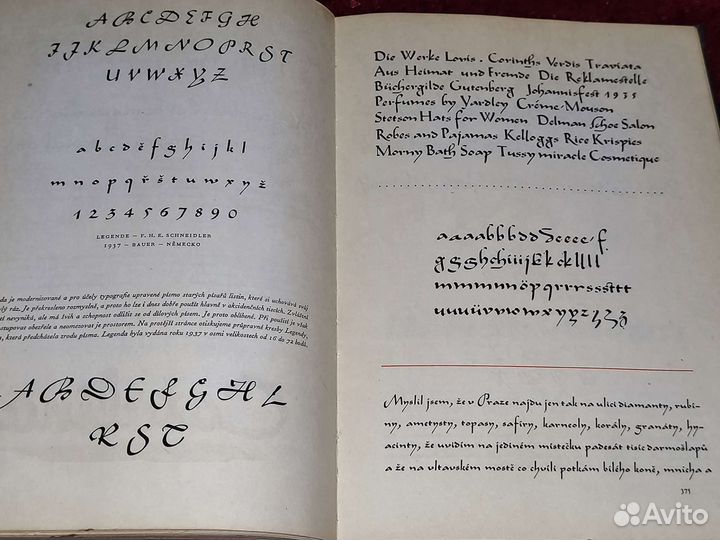 A B C D E F G H
I J K L M N O P Q R S T
U V W X Y Z
a b c d ě f g h i j k l
m n o p q ř š t u w x y ž
1 2 3 4 5 6 7 8 9 0
LEGENDE — F. H. E. SCHNEIDLER
1937 — BAUER — NĚMECKO
da je modernizované a pro účely typografie upravené písmo starých písařů listin, které si uchovává svůj
lý ráz. Je překresleno rozmyslně, a proto ho lze i dnes dobře použít hlavně v akcidenčních tiscích. Zvláštní
nevyniká, ale má švih a schopnost odlišit se od dílových písem. Je proto oblíbené. Při použití je však
ostupovat obezřele a neomezovat je prostorem. Na protější stránce otiskujeme průpravné kresby Legendy,
která předcházela zrodu písma. Legenda byla vydána roku 1937 v osmi velikostech od 16 do 72 bodů.
A B D E F G H L
R S T
Die Werke Loris . Corinths Verdis Traviata
Aus Heimat und Fremde Die Reklamestelle
Büchergilde Gutenberg Johannisfest 1935
Perfumes by Yardley Créme-Mouson
Stetson Hats for Women Delman Schoe Salon
Robes and Pajamas Kelloggs Rice Krispies
Morny Bath Soap Tussy miracle Cosmetique
aaaabbbdddeeee f
ggghchiiijkkcklllll
mmmnnnöpqrrrssstttt
uuuüvvvwwxyyzzz
Myslil jsem, že v Praze najdu jen tak na ulici diamanty, rubí-
ny, ametysty, topasy, safiry, karneoly, korály, granáty, hy-
acinty, že uvidím na jediném místečku padesát tisíc darmošlapů
a že na vltavském mostě co chvíli potkám bílého koně, mnicha a
375
Avito